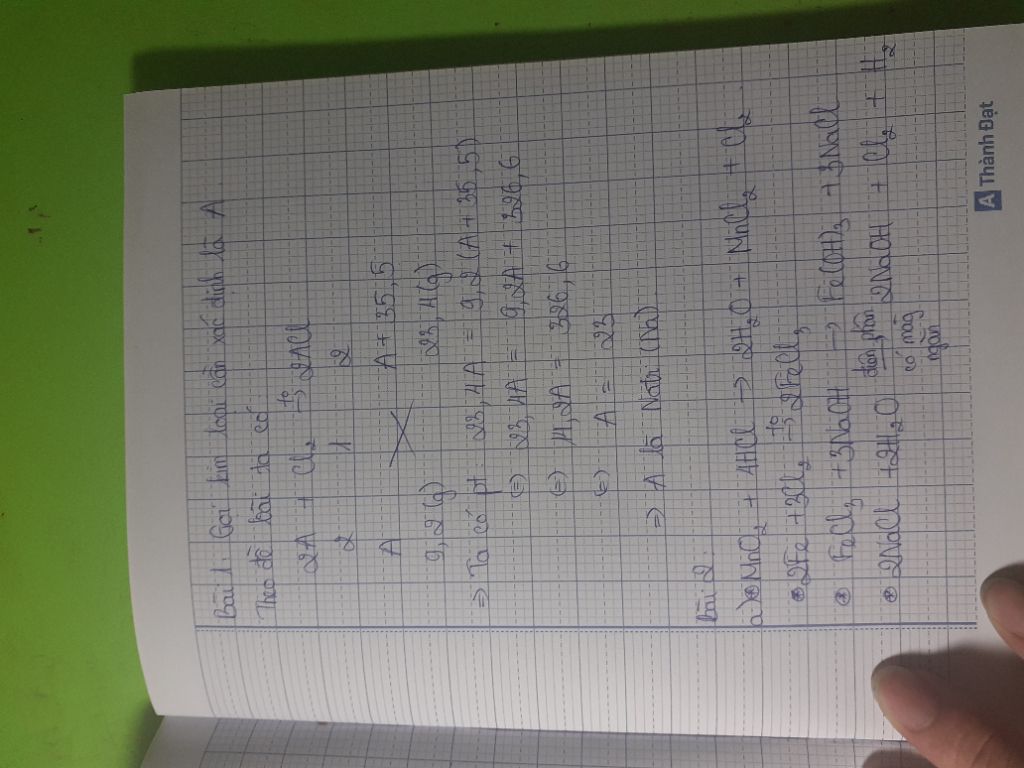 Bài 1: Gọi kim loại cần xác định là A
Theo đề bài ta có
2A + Cl2 t° → 2ACl
2 1 2
A A + 35,5
9,2 (g) 23,4 (g)
⇒ Ta có pt: 23,4A = 9,2 (A + 35,5)
(=) 23,4A = 9,2A + 326,6
(=) 14,2A = 326,6
(=) A = 23
⇒ A là Natri (Na)
Bài 2:
a) ⊛ MnO2 + 4HCl → 2H2O + MnCl2 + Cl2
⊛ 2Fe + 3Cl2 t° → 2FeCl3
⊛ FeCl3 + 3NaOH → Fe(OH)3 + 3NaCl
⊛ 2NaCl + 2H2O điện phân 2NaOH + Cl2 + H2
có màng
ngăn
A Thành Đạt